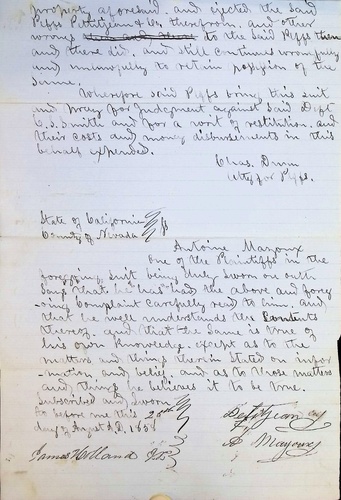 property aforesaid, and ejected the said
Plffs Petitjean & Co therefrom, and other
wrongs to the said Plffs then
and there did, and still continues wrongfully
and unlawfully to retain possession of the
same.
Wherefore said Plffs bring this suit
and pray for Judgment against said Deft
C. S. Smith and for a writ of restitution, and
their costs and money disbursements in this
behalf expended.
Chas. Dunn
Atty for Plffs.
State of California
County of Nevada } ss
Antoine Mayoux
One of the Plaintiffs in the
foregoing suit being duly sworn on oath
says that he has had the above and fore
-going Complaint carefully read to him, and
that he well understands the Contents
thereof, and that the same is true of
his own knowledge, except as to the
matters and things therein stated on infor
-mation and belief, and as to those matters
and things he believes it to be true.
Subscribed and Sworn
to before me this 20th
day of August A.D. 1858
A Mayoux
James Holland